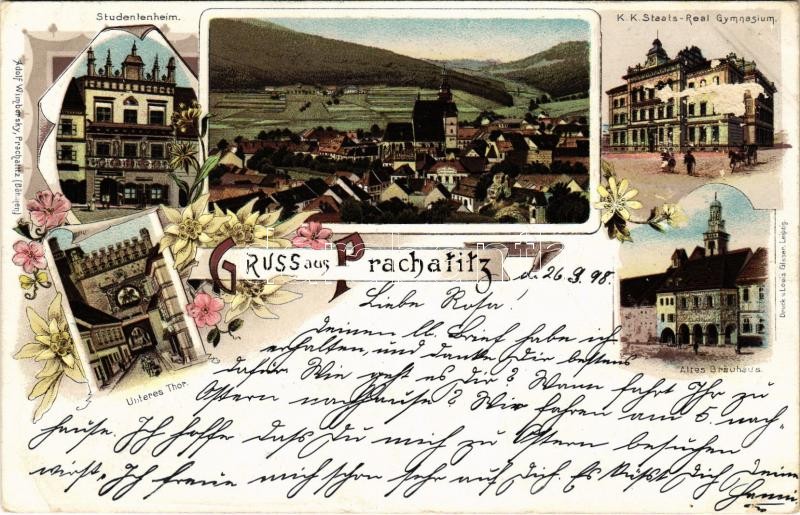 Studentenheim.
K. K. Staats-Real Gymnasium.
Adolf Wimbersky, Prachatitz (Böhmen)
GRUSS aus Prachatitz
d. 26.3.98.
Unteres Thor.
Altes Brauhaus.
Druck v. Louis Glaser, Leipzig.
Liebe Rosa!
Deinen lb. Brief habe ich
erhalten, und danke Dir bestens
dafür. Wie geht es Dir? Wann fahrt Ihr zu
Ostern nachhause? Wir fahren am 5. nach-
hause. Ich hoffe das Du mich zu Ostern besuchen
wirst, Ich freue mich schon sehr auf Dich. Es küßt Dich Deine
Hanni.